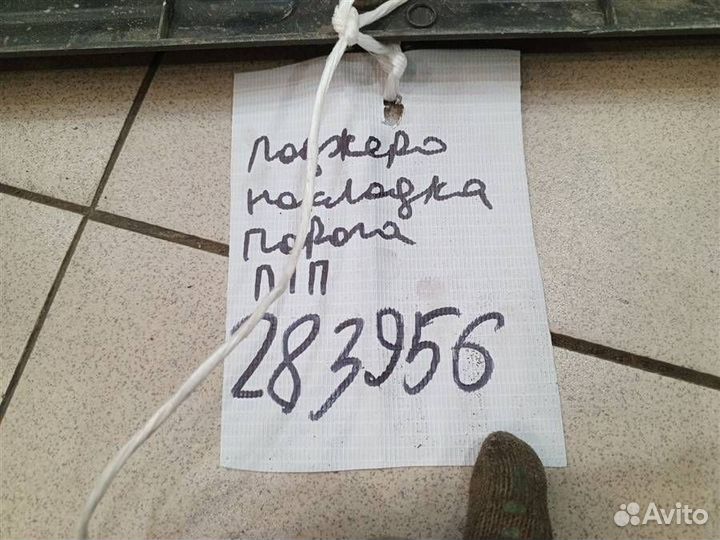 Паджеро
накладка
порога
ПП
283956
Avito